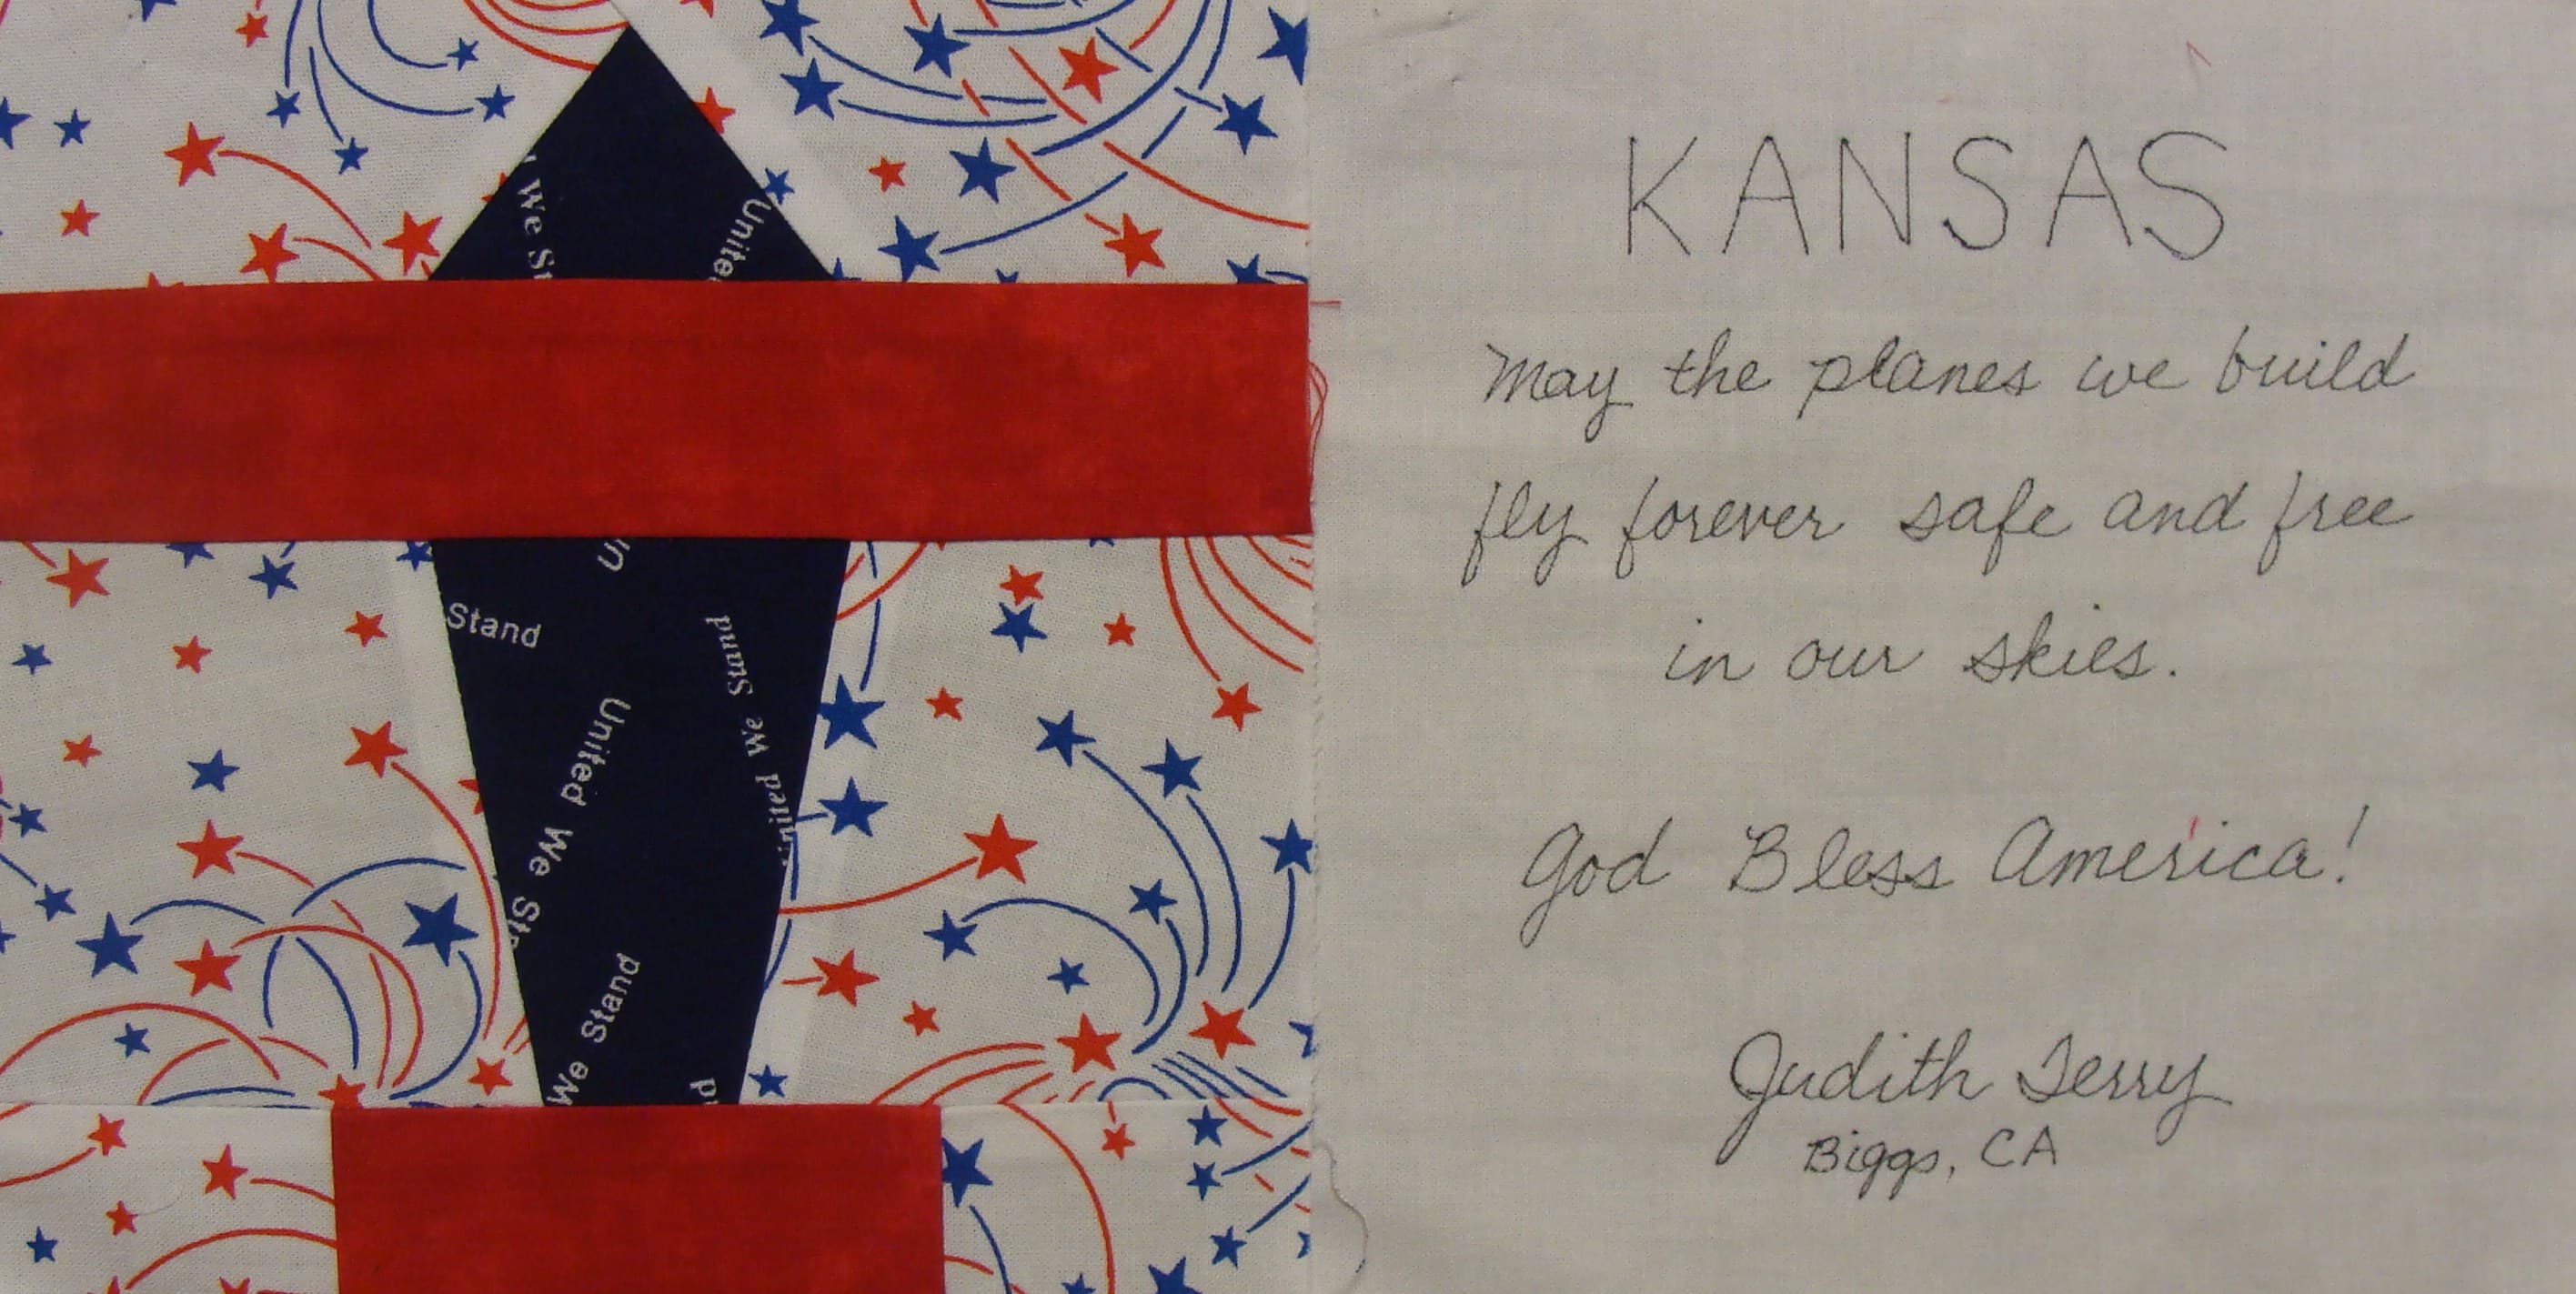 We St
Unite
Un
Stand
United We Stand
United We Sta
We Stand
d
KANSAS
May the planes we build
fly forever safe and free
in our skies.
God Bless America!
Judith Terry
Biggs, CA